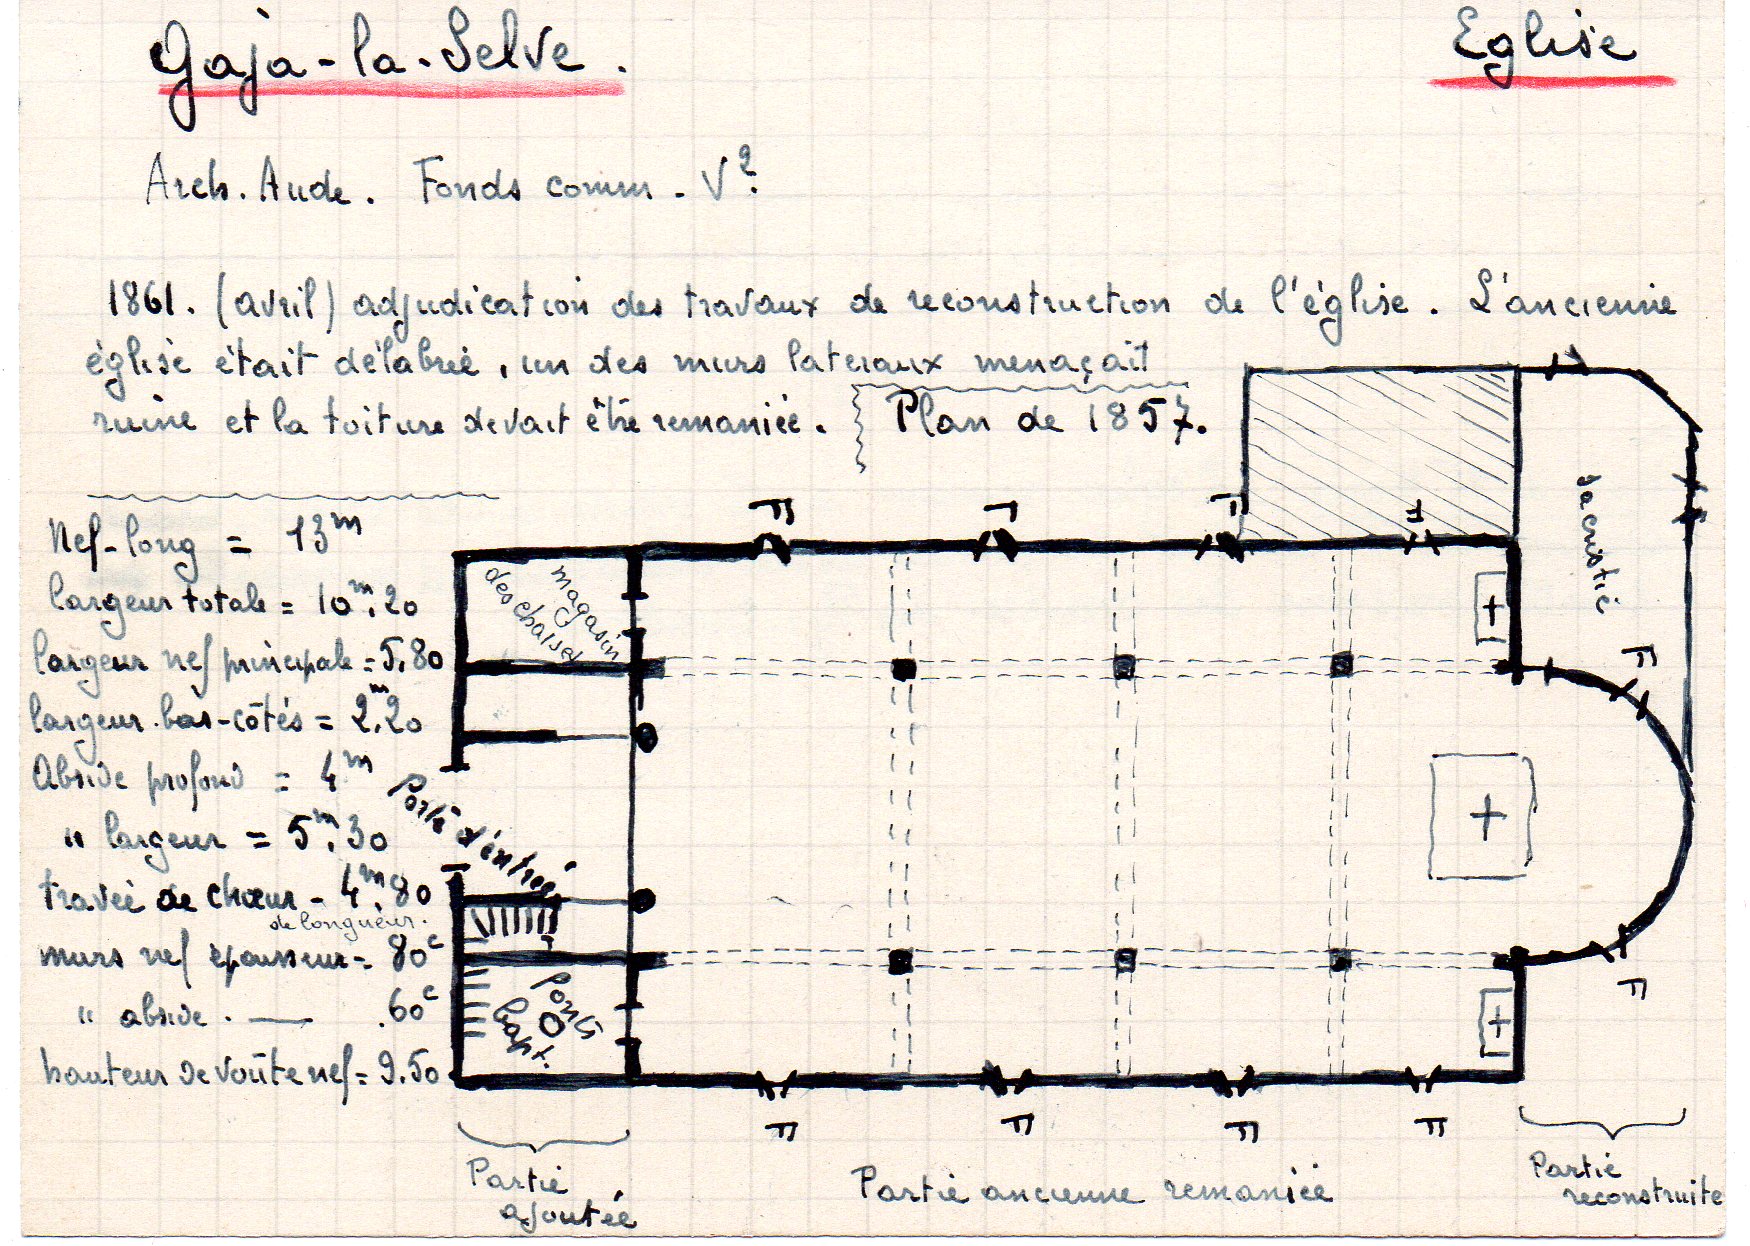 Gaja-la-Selve.
Eglise
Arch. Aude. Fonds comm. V².
1861. (avril) adjudication des travaux de reconstruction de l'église. L'ancienne
église était délabrée, un des murs lateraux menaçait
ruine et la toiture devait être remaniée.
Plan de 1857.
Nef-long = 13m
largeur totale = 10m.20
largeur nef principale = 5.80
largeur bas-côtés = 2m.20
Abside profond = 4m
" largeur = 5m.30
travée de chœur - 4m.80
de longueur.
murs nef épaisseur = 80c
" abside . — .60c
hauteur de voûte nef = 9.50
magasin
des chaises
Porte d'entrée
Fonts
bapt.
sacristie
F
F
F
F
F
F
F
F
F
F
Partie
ajoutée
Partie ancienne remaniée
Partie
reconstruite